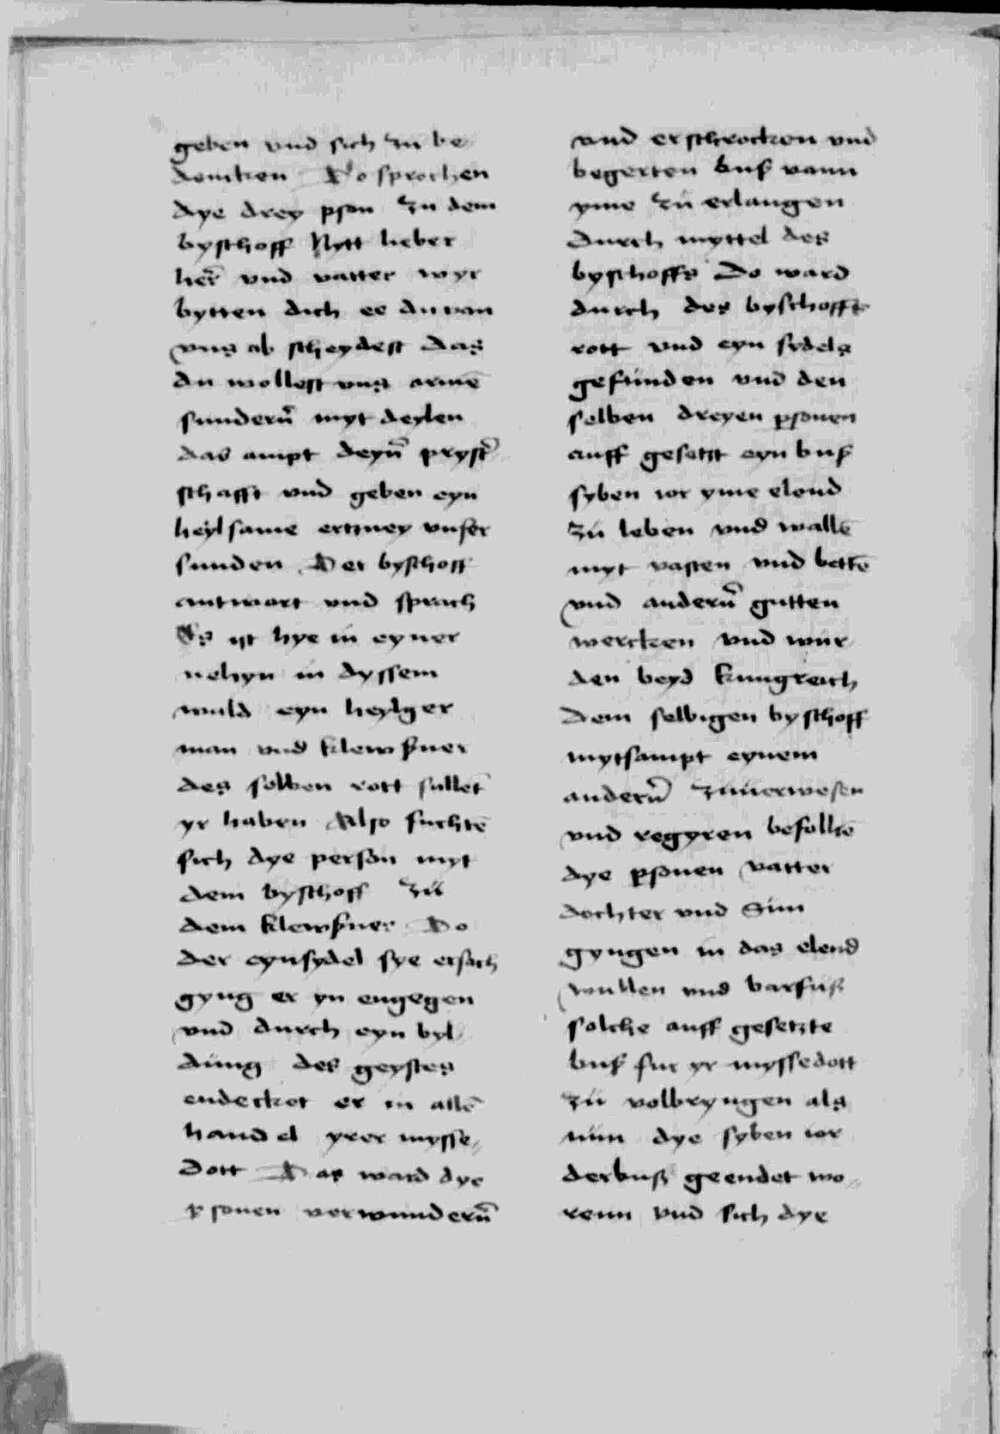 geben vnd sich zu be
dencken Do sprochen
dye drey pson zu dem
byschoff Nytt lieber
her̃ vnd vatter wyr
bytten dich ee du van
vns ab scheydest das
du wollest vns armē
sundern̄ myt deylen
das ampt deyn̄ pryst̄
schafft vnd geben eyn
heylsame ertzney vnser
sunden Der byschoff
antwort vnd sprach
Es ist hye in eyner
nehyn in dyssem
wuld eyn heylger
man vnd klewßner
des selben rott sullet̄
yr haben Also fuchtē
sich dye person myt
dem byschoff zu
dem klewßner Do
der eynsydel sye ersach
gyng er yn engegen
vnd durch eyn byl
dung des geystes
endecket er in allē
handel yrer mysse
dott Das ward dye
psonen verwundern̄
vnd erschrocken vnd
begerten buß vann
yme zu erlangen
durch myttel des
byschoffs Do ward
durch des byschoffs
rott vnd eyn sydels
gefunden vnd den
selben dreyen psonen
auff gesetzt eyn buß
syben ior yme elend
zu leben vnd wallē
myt vasten vnd bettē
vnd andern̄ gutten
wercken vnd wur
den beyd kungreich
dem selbigen byschoff
mytsampt eynem
andern̄ zuuerwesen
vnd regyren befolhē
dye psonen vatter
dochter vnd Sun
gyngen in das elend
wullen vnd barfuß
solche auff gesetzte
buß fur yr myssedott
zu volbryngen als
nun dye syben ior
der buß geendet wo
renn vnd sich dye